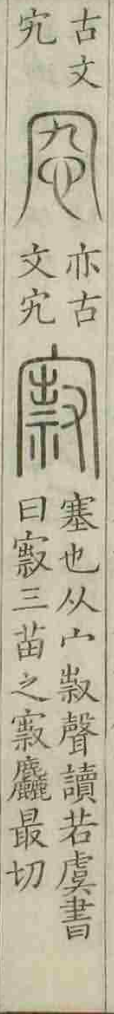 古文
宄
㝌
亦古
文宄
㝮
塞也从宀𠭥聲讀若虞書
曰㝮三苗之㝮麤最切